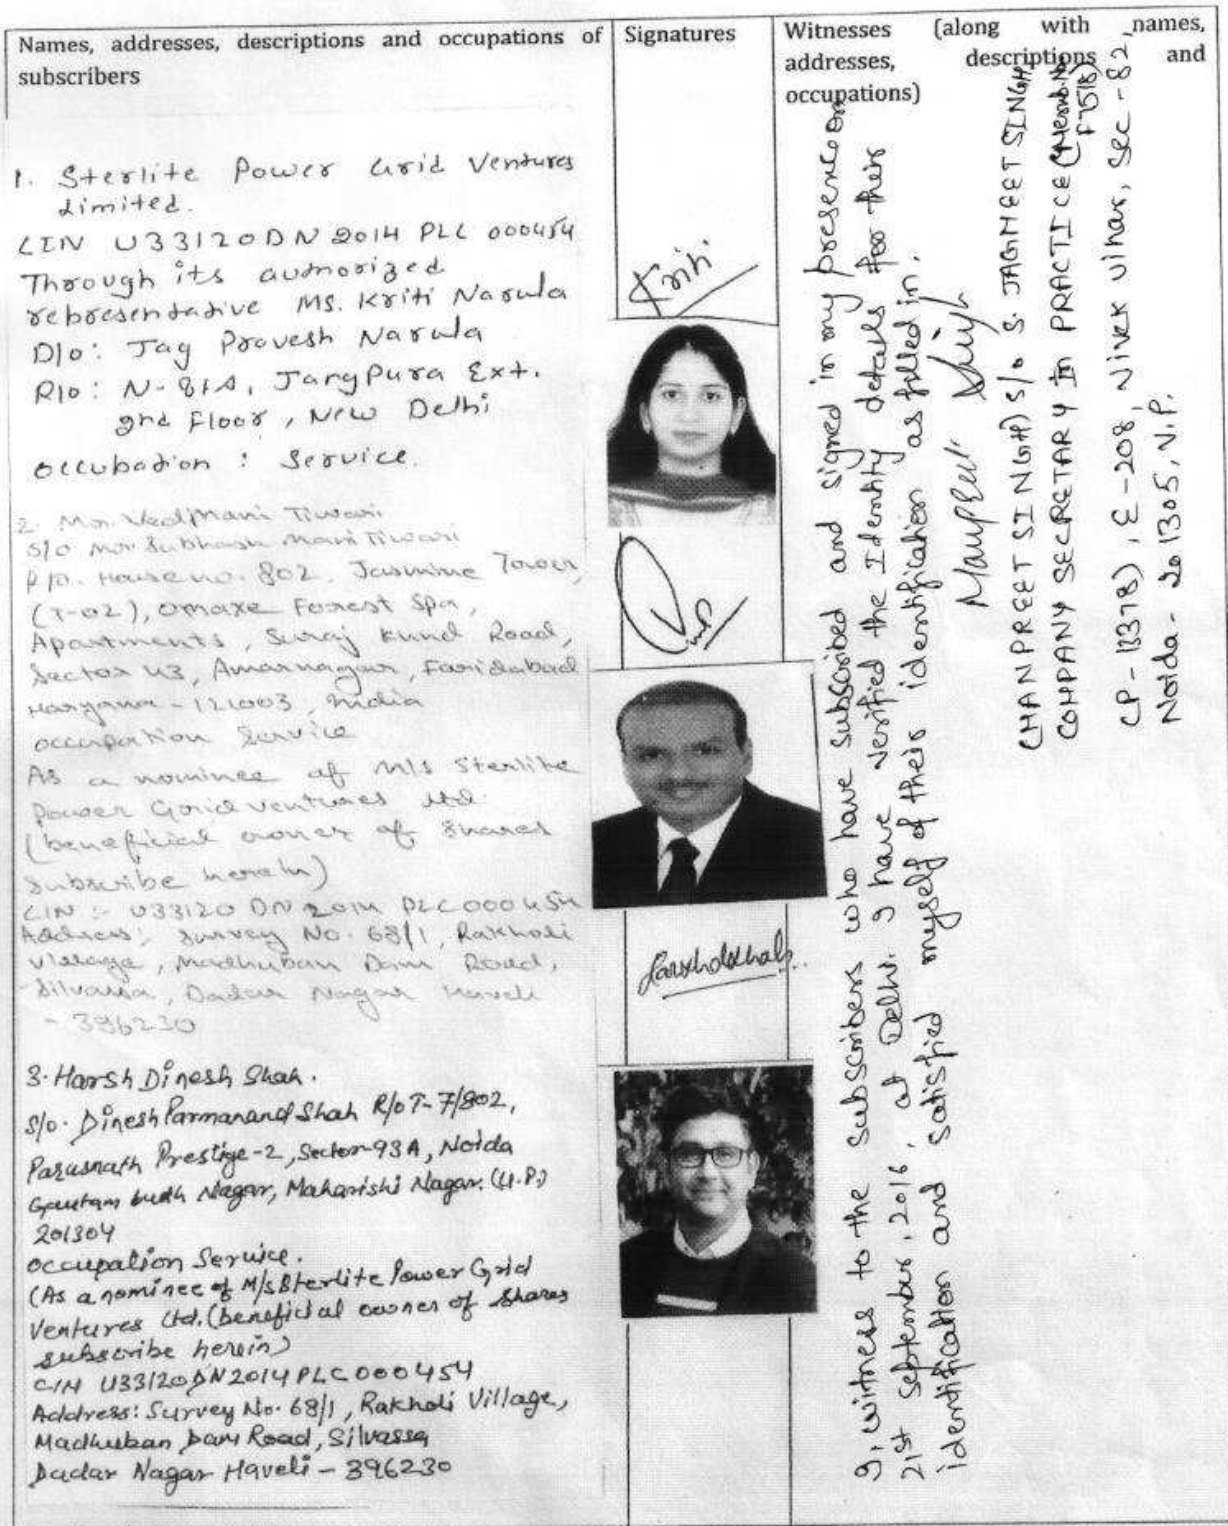 Names, addresses, descriptions and occupations of
subscribers
Signatures
Witnesses (along with names,
addresses, descriptions and
occupations)
1. Sterlite Power Grid Ventures
Limited.
CIN U33120DN2014PLC000454
Through its authorized
rebresentative Ms. Kriti Narula
D/o: Jag Pravesh Narula
R/o: N-81A, JangPura Ext.
2nd Floor, New Delhi
occubation : Service.
Kriti
2. Mr. Ved Mani Tiwari
S/o Mr Subhash Mani Tiwari
R/o. House no. 802, Jasmine Tower,
(T-02), omaxe Forest Spa,
Apartments, Suraj Kund Road,
Sector 43, Amarnagar, Faridabad
Haryana - 121003, India
occupation Service
As a nominee of M/s Sterlite
Power Grid ventures Ltd.
(beneficial owner of shares
subscribe herein)
CIN :- U33120DN2014PLC000454
Address: Survey No. 68/1, Rakholi
Village, Madhuban Dam Road,
Silvassa, Dadar Nagar Haveli
- 396230
3. Harsh Dinesh Shah.
S/o. Dinesh Parmanand Shah R/o T-7/802,
Parasnath Prestige-2, Sector-93A, Noida
Gautam budh Nagar, Maharishi Nagar. (U.P.)
201304
occupation Service.
(As a nominee of M/s Sterlite Power Grid
Ventures Ltd. (beneficial owner of shares
subscribe herein)
CIN U33120DN2014PLC000454
Address: Survey No. 68/1, Rakholi Village,
Madhuban Dam Road, Silvassa
Dadar Nagar Haveli - 396230
I, witness to the subscribers who have subscribed and signed in my presence on
21st September, 2016, at Delhi. I have verified the Identity details for their
identification and satisfied myself of their identification as filled in.
Manpreet Singh
(MANPREET SINGH) S/o S. JAGMEET SINGH
COMPANY SECRETARY IN PRACTICE (Memb. No
F7518)
CP-13378), E-208, Vivek Vihar, Sec-82,
Noida - 201305, U.P.